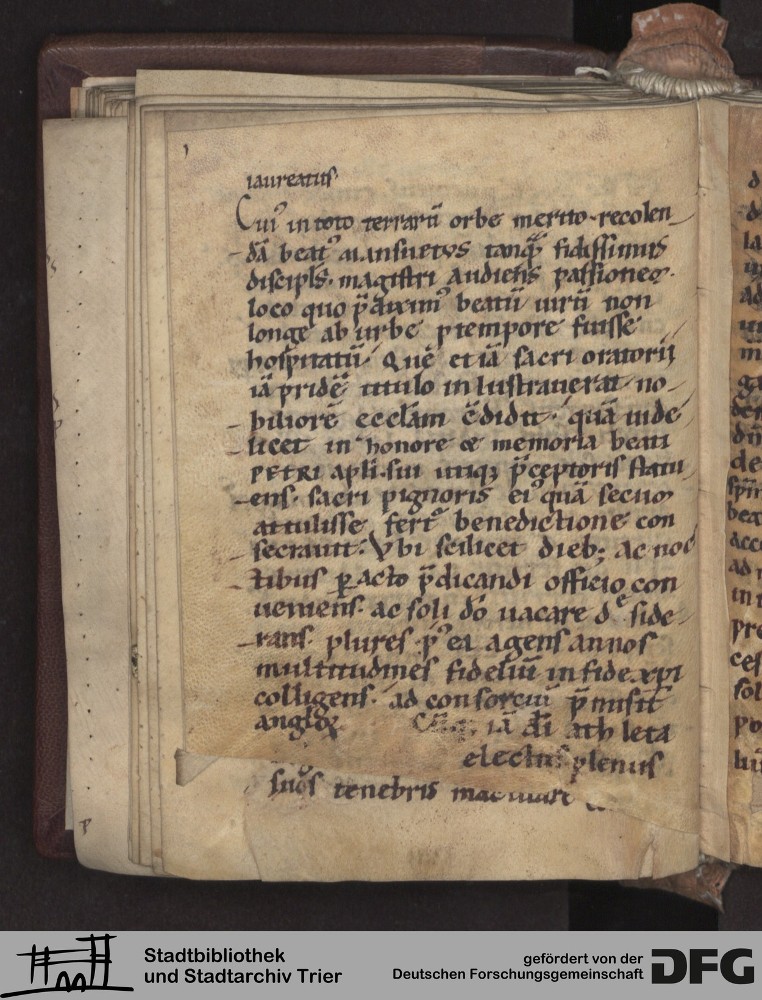 laureatus
Cui' in toto terrarū orbe merito recolen
dā beat' MANSVETVS tanq̄ fidissimus
discipl's magistri audiens passioneȝ
loco quo p̄diximꝰ beatū uirū non
longe ab urbe p tempore fuisse
hospitatū. Quē etiā sacri oratorij
iā pridē titulo inlustrauerat. no
biliorē eccl̄am c̄didit. quā uide
licet in honore & memoria beati
PETRI apl̄i sui utiq; p̄ceptoris statu
ens. sacri pignoris ei' quā secum
attulisse fert' benedictione con
secrauit. Vbi scilicet dieb; ac noc
tibus ꝑacto p̄dicandi officio con
ueniens. ac soli dō uacare de side
rans. plures p' ea agens annos
multitudines fideliū in fide xp̄i
colligens. ad consorciū p̄misit
angloꝝ iā dī athleta
electus plenus
suos tenebris
Stadtbibliothek
und Stadtarchiv Trier
gefördert von der
Deutschen Forschungsgemeinschaft
DFG